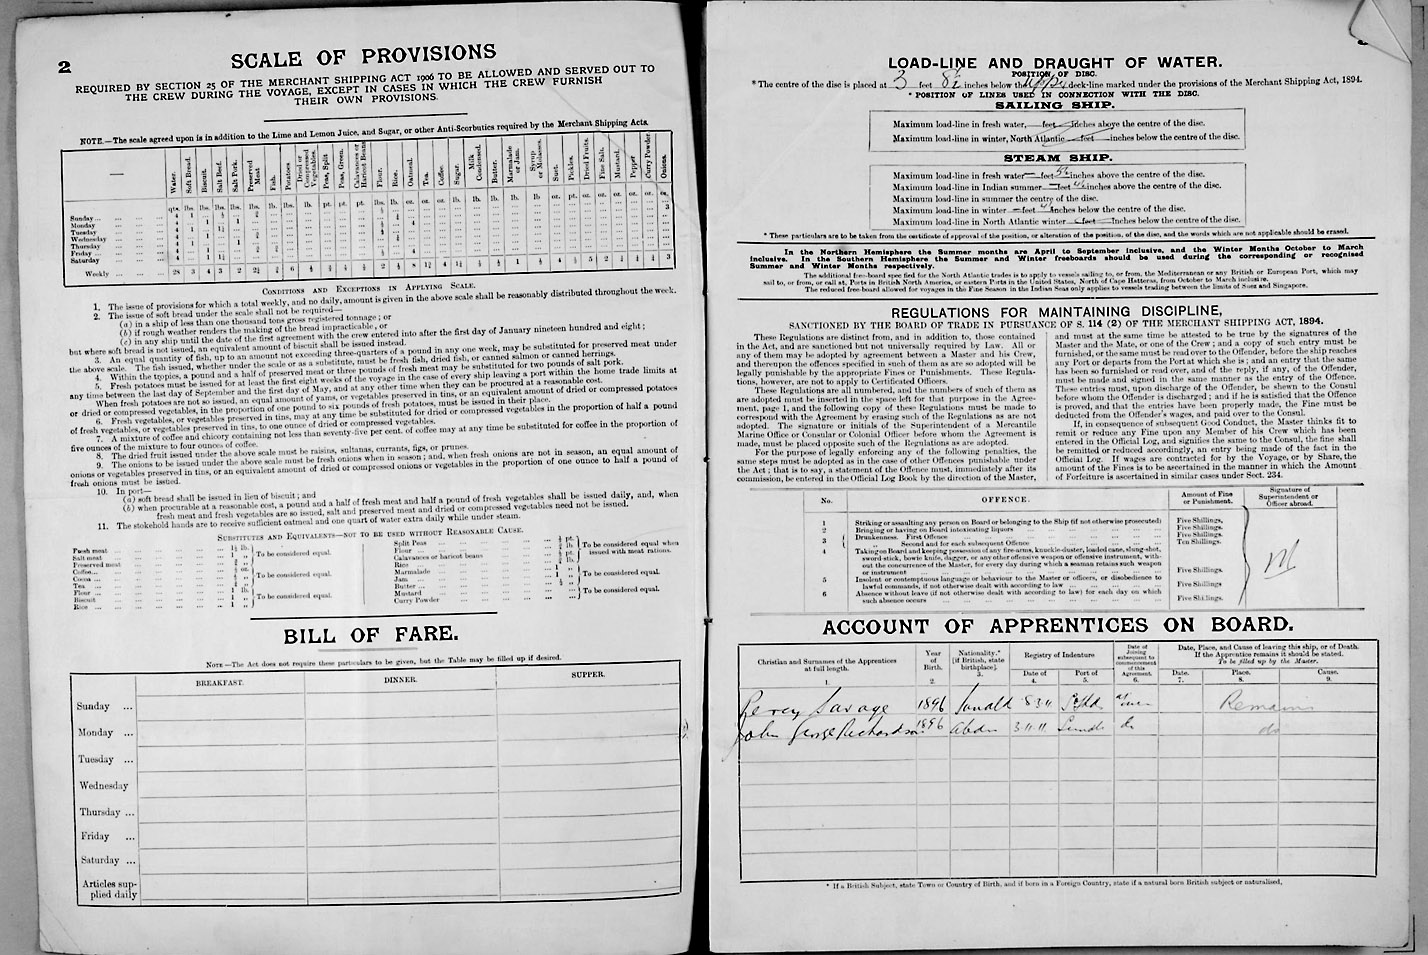 2
SCALE OF PROVISIONS
REQUIRED BY SECTION 25 OF THE MERCHANT SHIPPING ACT 1906 TO BE ALLOWED AND SERVED OUT TO
THE CREW DURING THE VOYAGE, EXCEPT IN CASES IN WHICH THE CREW FURNISH
THEIR OWN PROVISIONS.
NOTE.—The scale agreed upon is in addition to the Lime and Lemon Juice, and Sugar, or other Anti-Scorbutics required by the Merchant Shipping Acts.
Water. Soft Bread. Biscuit. Salt Beef. Salt Pork. Preserved Meat Fish. Potatoes Dried or Compressed Vegetables. Peas, Split Peas, Green. Calavances or Haricot Beans Flour. Rice. Oatmeal. Tea. Coffee. Sugar. Milk Condensed. Butter. Marmalade or Jam. Syrup or Molasses. Suet. Pickles. Dried Fruits. Fine Salt. Mustard. Pepper Curry Powder. Onions.
Sunday
Monday
Tuesday
Wednesday
Thursday
Friday
Saturday
Weekly
CONDITIONS AND EXCEPTIONS IN APPLYING SCALE.
1. The issue of provisions for which a total weekly, and no daily, amount is given in the above scale shall be reasonably distributed throughout the week.
2. The issue of soft bread under the scale shall not be required—
(a) in a ship of less than one thousand tons gross registered tonnage; or
(b) if rough weather renders the making of the bread impracticable, or
(c) in any ship until the date of the first agreement with the crew entered into after the first day of January nineteen hundred and eight;
but where soft bread is not issued, an equivalent amount of biscuit shall be issued instead.
3. An equal quantity of fish, up to an amount not exceeding three-quarters of a pound in any one week, may be substituted for preserved meat under
the above scale. The fish issued, whether under the scale or as a substitute, must be fresh fish, dried fish, or canned salmon or canned herrings.
4. Within the tropics, a pound and a half of preserved meat or three pounds of fresh meat may be substituted for two pounds of salt pork.
5. Fresh potatoes must be issued for at least the first eight weeks of the voyage in the case of every ship leaving a port within the home trade limits at
any time between the last day of September and the first day of May, and at any other time when they can be procured at a reasonable cost.
When fresh potatoes are not so issued, an equal amount of yams, or vegetables preserved in tins, or an equivalent amount of dried or compressed potatoes
or dried or compressed vegetables, in the proportion of one pound to six pounds of fresh potatoes, must be issued in their place.
6. Fresh vegetables, or vegetables preserved in tins, may at any time be substituted for dried or compressed vegetables in the proportion of half a pound
of fresh vegetables, or vegetables preserved in tins, to one ounce of dried or compressed vegetables.
7. A mixture of coffee and chicory containing not less than seventy-five per cent. of coffee may at any time be substituted for coffee in the proportion of
five ounces of the mixture to four ounces of coffee.
8. The dried fruit issued under the above scale must be raisins, sultanas, currants, figs, or prunes.
9. The onions to be issued under the above scale must be fresh onions when in season; and, when fresh onions are not in season, an equal amount of
onions or vegetables preserved in tins, or an equivalent amount of dried or compressed onions or vegetables in the proportion of one ounce to half a pound of
fresh onions must be issued.
10. In port—
(a) soft bread shall be issued in lieu of biscuit; and
(b) when procurable at a reasonable cost, a pound and a half of fresh meat and half a pound of fresh vegetables shall be issued daily, and, when
fresh meat and fresh vegetables are so issued, salt and preserved meat and dried or compressed vegetables need not be issued.
11. The stokehold hands are to receive sufficient oatmeal and one quart of water extra daily while under steam.
SUBSTITUTES AND EQUIVALENTS—NOT TO BE USED WITHOUT REASONABLE CAUSE.
Fresh meat
Salt meat To be considered equal.
Preserved meat
Coffee
Cocoa To be considered equal.
Tea
Flour
Biscuit To be considered equal.
Rice
Split Peas
Flour To be considered equal when
Calavances or haricot beans issued with meat rations.
Rice
Marmalade
Jam To be considered equal.
Butter
Mustard To be considered equal.
Curry Powder
BILL OF FARE.
NOTE—The Act does not require these particulars to be given, but the Table may be filled up if desired.
BREAKFAST. DINNER. SUPPER.
Sunday ...
Monday ...
Tuesday ...
Wednesday
Thursday ...
Friday ...
Saturday ...
Articles sup-
plied daily
LOAD-LINE AND DRAUGHT OF WATER.
POSITION OF DISC.
* The centre of the disc is placed at 3 feet 8½ inches below the upper deck-line marked under the provisions of the Merchant Shipping Act, 1894.
* POSITION OF LINES USED IN CONNECTION WITH THE DISC.
SAILING SHIP.
Maximum load-line in fresh water, feet inches above the centre of the disc.
Maximum load-line in winter, North Atlantic feet inches below the centre of the disc.
STEAM SHIP.
Maximum load-line in fresh water — feet inches above the centre of the disc.
Maximum load-line in Indian summer — feet inches above the centre of the disc.
Maximum load-line in summer the centre of the disc.
Maximum load-line in winter — feet inches below the centre of the disc.
Maximum load-line in North Atlantic winter feet inches below the centre of the disc.
* These particulars are to be taken from the certificate of approval of the position, or alteration of the position, of the disc, and the words which are not applicable should be erased.
In the Northern Hemisphere the Summer months are April to September inclusive, and the Winter Months October to March
inclusive. In the Southern Hemisphere the Summer and Winter freeboards should be used during the corresponding or recognised
Summer and Winter Months respectively.
The additional free-board specified for the North Atlantic trades is to apply to vessels sailing to, or from, the Mediterranean or any British or European Port, which may
sail to, or from, or call at, Ports in British North America, or eastern Ports in the United States, North of Cape Hatteras, from October to March inclusive.
The reduced free-board allowed for voyages in the Fine Season in the Indian Seas only applies to vessels trading between the limits of Suez and Singapore.
REGULATIONS FOR MAINTAINING DISCIPLINE,
SANCTIONED BY THE BOARD OF TRADE IN PURSUANCE OF S. 114 (2) OF THE MERCHANT SHIPPING ACT, 1894.
These Regulations are distinct from, and in addition to, those contained
in the Act, and are sanctioned but not universally required by Law. All or
any of them may be adopted by agreement between a Master and his Crew,
and thereupon the offences specified in such of them as are so adopted will be
legally punishable by the appropriate Fines or Punishments. These Regula-
tions, however, are not to apply to Certificated Officers.
These Regulations are all numbered, and the numbers of such of them as
are adopted must be inserted in the space left for that purpose in the Agree-
ment, page 1, and the following copy of these Regulations must be made to
correspond with the Agreement by erasing such of the Regulations as are not
adopted. The signature or initials of the Superintendent of a Mercantile
Marine Office or Consular or Colonial Officer before whom the Agreement is
made, must be placed opposite such of the Regulations as are adopted.
For the purpose of legally enforcing any of the following penalties, the
same steps must be adopted as in the case of other Offences punishable under
the Act; that is to say, a statement of the Offence must, immediately after its
commission, be entered in the Official Log Book by the direction of the Master,
and must at the same time be attested to be true by the signatures of the
Master and the Mate, or one of the Crew; and a copy of such entry must be
furnished, or the same must be read over to the Offender, before the ship reaches
any Port or departs from the Port at which she is; and an entry that the same
has been so furnished or read over, and of the reply, if any, of the Offender,
must be made and signed in the same manner as the entry of the Offence.
These entries must, upon discharge of the Offender, be shewn to the Consul
before whom the Offender is discharged; and if he is satisfied that the Offence
is proved, and that the entries have been properly made, the Fine must be
deducted from the Offender's wages, and paid over to the Consul.
If, in consequence of subsequent Good Conduct, the Master thinks fit to
remit or reduce any Fine upon any Member of his Crew which has been
entered in the Official Log, and signifies the same to the Consul, the fine shall
be remitted or reduced accordingly, an entry being made of the fact in the
Official Log. If wages are contracted for by the Voyage, or by Share, the
amount of the Fines is to be ascertained in the manner in which the Amount
of Forfeiture is ascertained in similar cases under Sect. 234.
No. OFFENCE. Amount of Fine or Punishment. Signature of Superintendent or Officer abroad.
1 Striking or assaulting any person on Board or belonging to the Ship (if not otherwise prosecuted) Five Shillings.
2 Bringing or having on Board intoxicating liquors Five Shillings.
3 Drunkenness. First Offence Five Shillings.
„ Second and for each subsequent Offence Ten Shillings.
4 Taking on Board and keeping possession of any fire-arms, knuckle-duster, loaded cane, slung-shot,
sword-stick, bowie knife, dagger, or any other offensive weapon or offensive instrument, with-
out the concurrence of the Master, for every day during which a seaman retains such weapon
or instrument Five Shillings.
5 Insolent or contemptuous language or behaviour to the Master or officers, or disobedience to
lawful commands, if not otherwise dealt with according to law Five Shillings
6 Absence without leave (if not otherwise dealt with according to law) for each day on which
such absence occurs Five Shillings.
ACCOUNT OF APPRENTICES ON BOARD.
Christian and Surnames of the Apprentices at full length. 1. Year of Birth. 2. Nationality.* [if British, state birthplace]. 3. Registry of Indenture Date of 4. Port of 5. Date of Joining subsequent to commencement of this Agreement. 6. Date, Place, and Cause of leaving this ship, or of Death. If the Apprentice remains it should be stated. To be filled up by the Master. Date. 7. Place. 8. Cause. 9.
Percy Savage 1896 Sunderld 8 3 11 S'Hld Remains
John George Richardson 1896 Aberdn 3 11 11 do do
* If a British Subject, state Town or Country of Birth, and if born in a Foreign Country, state if a natural born British subject or naturalised.